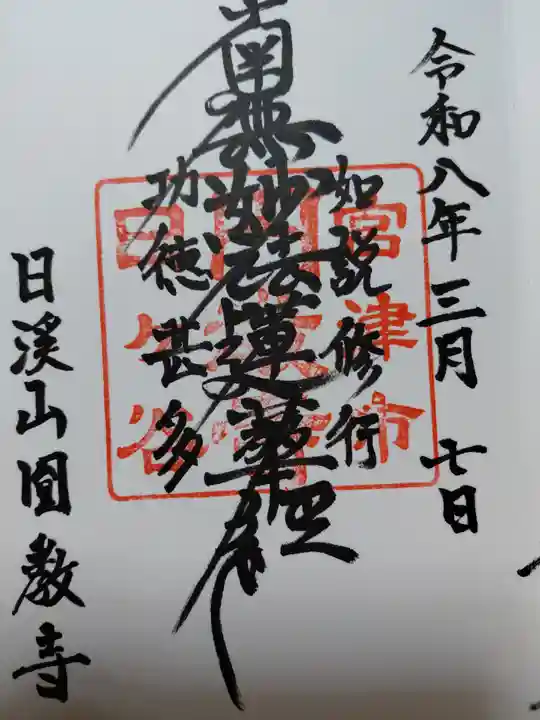 令和八年三月七日
如説修行
南無妙法蓮華経
功徳甚多
日溪山圓教寺
宮津市